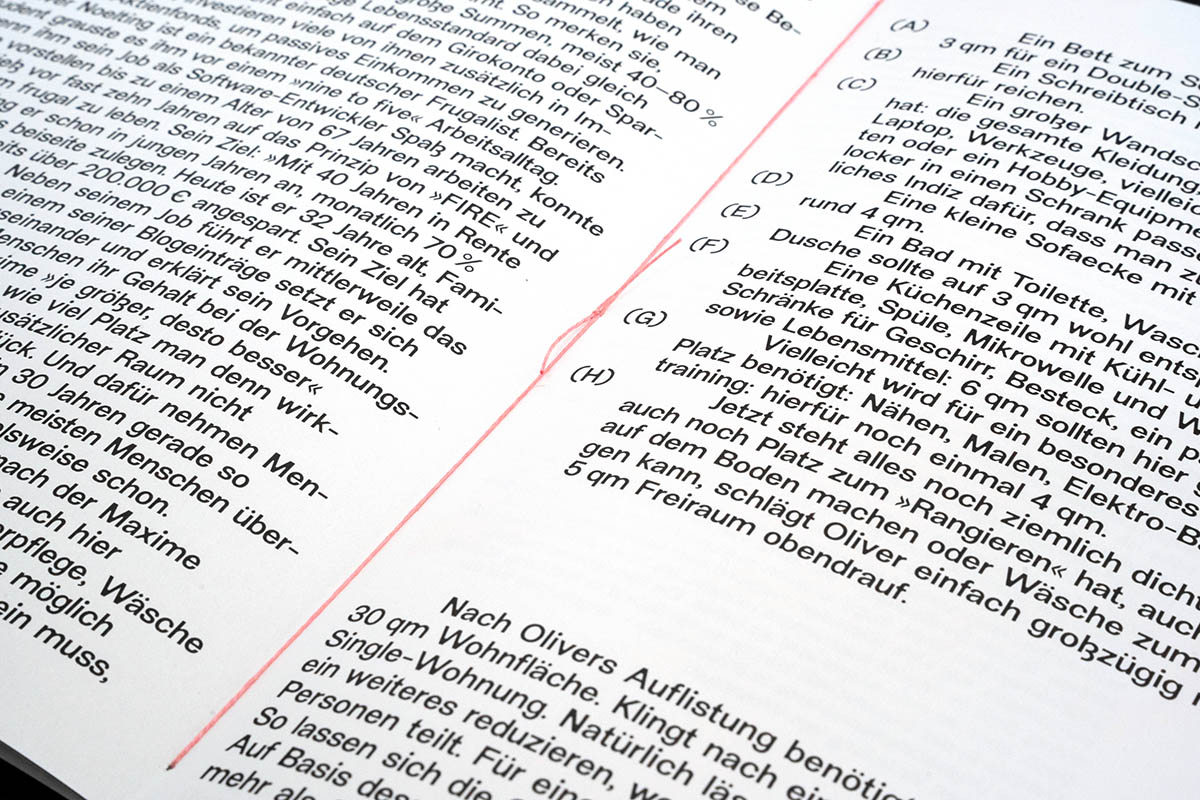 se Be-
ihren
haben
sammelt, wie man
So merken sie,
große Summen, meist 40–80 %
Lebensstandard dabei gleich
einfach auf dem Girokonto oder Spar-
investieren viele von ihnen zusätzlich in Im-
ktienfonds, um passives Einkommen zu generieren.
Noelting ist ein bekannter deutscher Frugalist. Bereits
grauste es ihm vor einem »nine to five« Arbeitsalltag.
ihm sein Job als Software-Entwickler Spaß macht, konnte
vorstellen bis zu einem Alter von 67 Jahren arbeiten zu
vor fast zehn Jahren auf das Prinzip von »FIRE« und
frugal zu leben. Sein Ziel: »Mit 40 Jahren in Rente
ng er schon in jungen Jahren an, monatlich 70 %
beiseite zulegen. Heute ist er 32 Jahre alt, Fami-
its über 200.000 € angespart. Sein Ziel hat
Neben seinem Job führt er mittlerweile das
einem seiner Blogeinträge setzt er sich
seinander und erklärt sein Vorgehen.
Menschen ihr Gehalt bei der Wohnungs-
ime »je größer, desto besser«
wie viel Platz man denn wirk-
usätzlicher Raum nicht
ück. Und dafür nehmen Men-
30 Jahren gerade so
meisten Menschen über-
elsweise schon.
nach der Maxime
auch hier
erpflege, Wäsche
möglich
ein muss,
(A) Ein Bett zum S
3 qm für ein Double-S
(B) Ein Schreibtisch
hierfür reichen.
(C) Ein großer Wandsc
hat: die gesamte Kleidung
Laptop, Werkzeuge, viellei
ten oder ein Hobby-Equipme
locker in einen Schrank passe
liches Indiz dafür, dass man zu
(D) Eine kleine Sofaecke mit
rund 4 qm.
(E) Ein Bad mit Toilette, Wasc
Dusche sollte auf 3 qm wohl ents
(F) Eine Küchenzeile mit Kühl- u
beitsplatte, Spüle, Mikrowelle und W
Schränke für Geschirr, Besteck, ein p
sowie Lebensmittel: 6 qm sollten hier g
(G) Vielleicht wird für ein besonderes
Platz benötigt: Nähen, Malen, Elektro-Ba
training: hierfür noch einmal 4 qm.
(H) Jetzt steht alles noch ziemlich dicht
auch noch Platz zum »Rangieren« hat, auch
auf dem Boden machen oder Wäsche zum
gen kann, schlägt Oliver einfach großzügig
5 qm Freiraum obendrauf.
Nach Olivers Auflistung benötig
30 qm Wohnfläche. Klingt nach ein
Single-Wohnung. Natürlich läs
ein weiteres reduzieren, we
Personen teilt. Für eine
So lassen sich die
Auf Basis des
mehr als